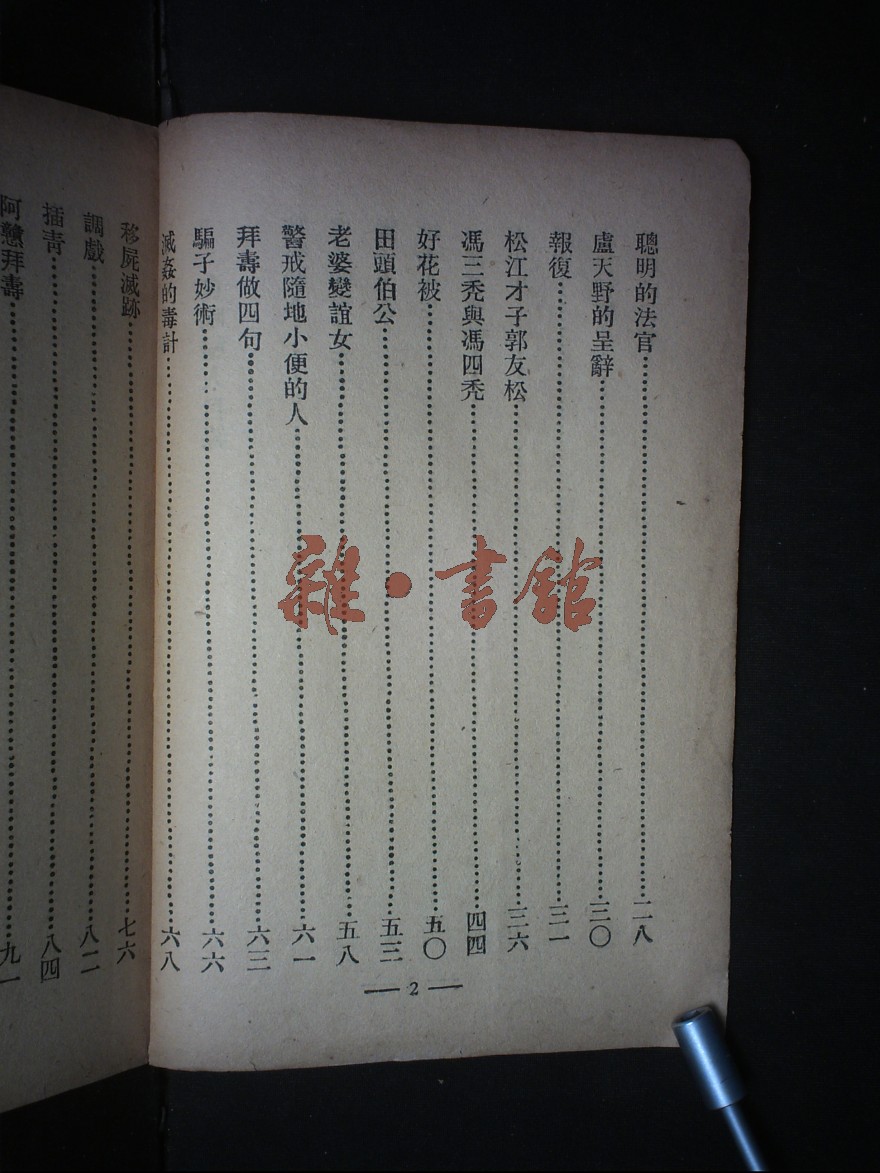 聰明的法官⋯⋯二八
盧天野的呈辭⋯⋯三〇
報復⋯⋯三一
松江才子郭友松⋯⋯三六
馮三禿與馮四禿⋯⋯四四
好花被⋯⋯五〇
田頭伯公⋯⋯五三
老婆變誼女⋯⋯五八
警戒隨地小便的人⋯⋯六一
拜壽做四句⋯⋯六三
騙子妙術⋯⋯六六
滅姦的毒計⋯⋯六八
— 2 —
移屍滅跡⋯⋯七六
調戲⋯⋯八二
插靑⋯⋯八四
阿戇拜壽⋯⋯九一
雜·書館